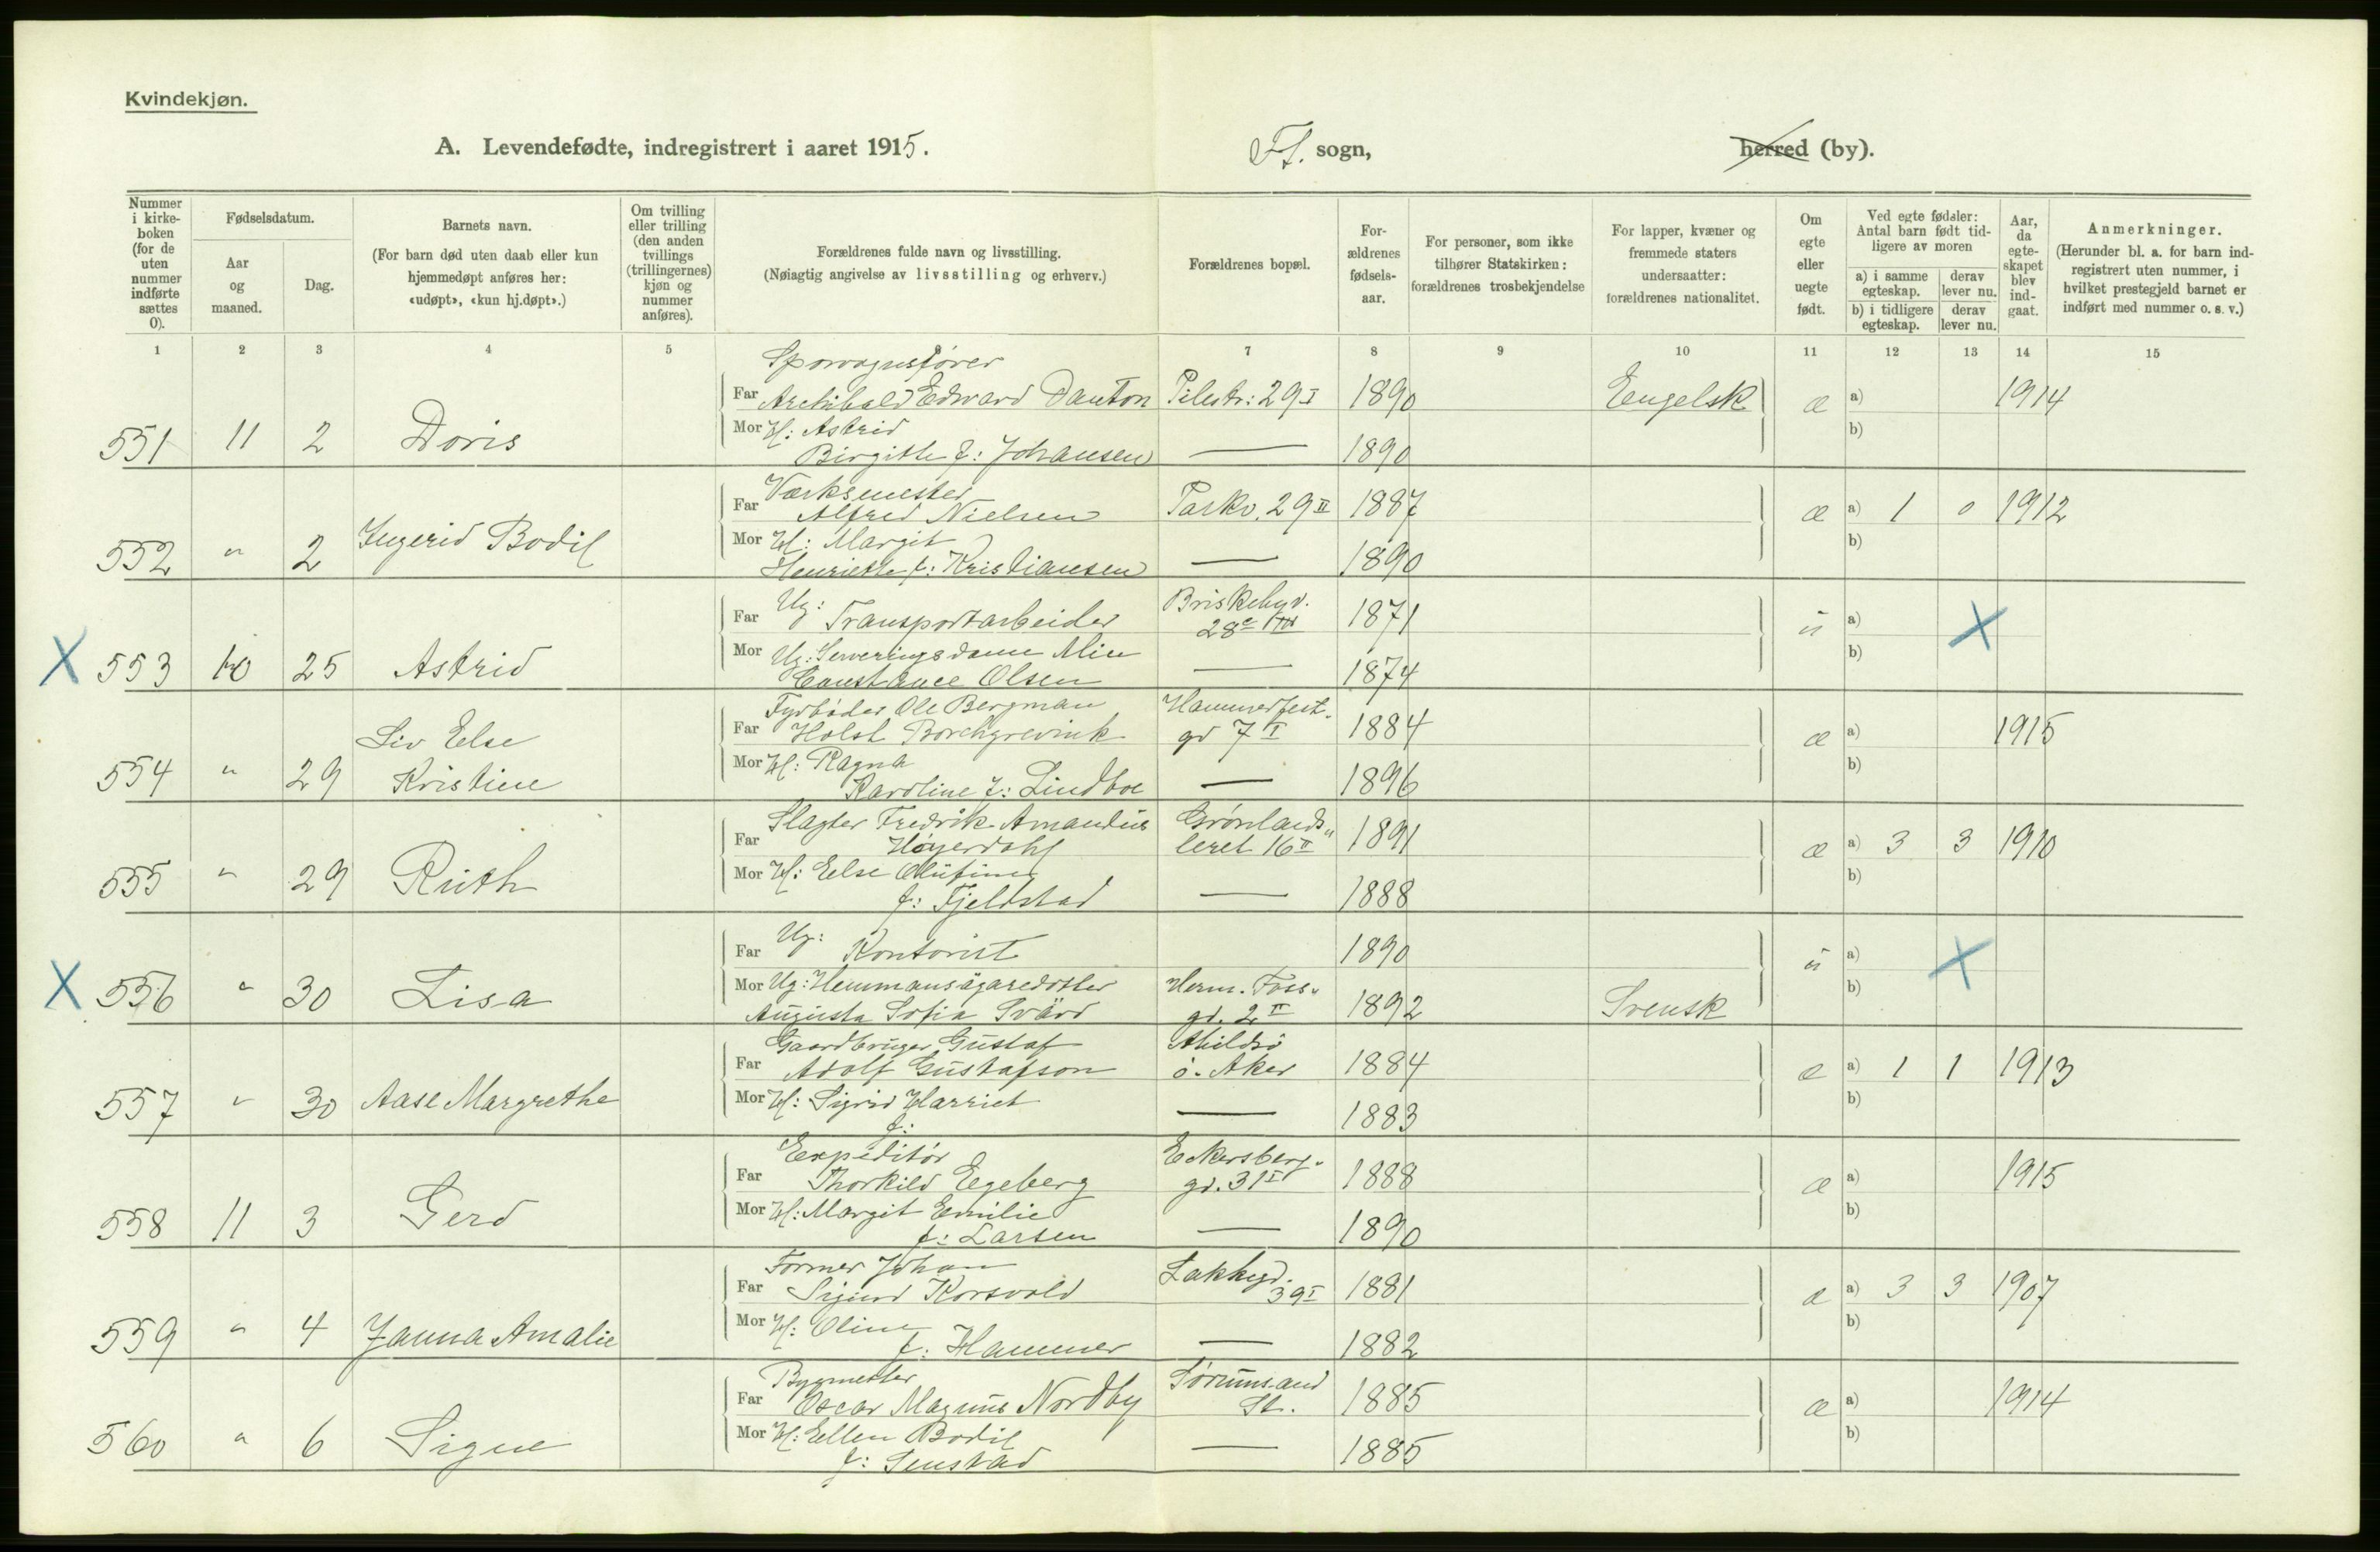 Kvindekjøn.
A. Levendefødte, indregistrert i aaret 1915. Fs. sogn, herred (by).
Nummer i kirke-boken (for de uten nummer indførte sættes 0).
Fødselsdatum.
Aar og maaned.
Dag.
Barnets navn.
(For barn død uten daab eller kun hjemmedøpt anføres her: «udøpt», «kun hj.døpt».)
Om tvilling eller trilling (den anden tvillings (trillingernes) kjøn og nummer anføres).
Forældrenes fulde navn og livsstilling.
(Nøiagtig angivelse av livsstilling og erhverv.)
Forældrenes bopæl.
For-ældrenes fødsels-aar.
For personer, som ikke tilhører Statskirken: forældrenes trosbekjendelse
For lapper, kvæner og fremmede staters undersaatter: forældrenes nationalitet.
Om egte eller uegte født.
Ved egte fødsler: Antal barn født tid-ligere av moren
a) i samme egteskap. derav lever nu.
b) i tidligere egteskap. derav lever nu.
Aar, da egte-skapet blev ind-gaat.
Anmerkninger.
(Herunder bl. a. for barn ind-registrert uten nummer, i hvilket prestegjeld barnet er indført med nummer o. s. v.)
1 2 3 4 5 7 8 9 10 11 12 13 14 15
Sporvognsfører
Far Archibald Edward Danton Pilestr: 29 I 1890 Engelsk æ a) 1914
Mor H: Astrid b)
551 11 2 Doris Birgitte f: Johansen — 1890
Værksmester
Far Alfred Nielsen Parkv. 29 II 1887 æ a) 1 0 1912
Mor H: Margit b)
552 " 2 Ingerid Bodil Henriette f: Kristiansen — 1890
Ug: Briskebyv.
Far Transportarbeider 28c III 1871 ú a) X
Mor Ug: Serveringsdame Alice b)
X 553 10 25 Astrid Constance Olsen — 1874
Fyrbøder Ole Bergman Hammerfest-
Far Holst Borchgrevink gd 7 I 1884 æ a) 1915
Liv Else
Mor H: Ragna b)
554 " 29 Kristine Karoline f: Lindboe — 1896
Slagter Fredrik Amandus Grønlands"
Far Høyerdahl leret 16 II 1891 æ a) 3 3 1910
Mor H: Else Olufine b)
555 " 29 Ruth f: Fjeldstad — 1888
Ug:
Far Kontorist 1890 ú a) X
Mor Ug: Hemmansägaredotter Herm. Foss" b)
X 556 " 30 Lisa Augusta Sofia Svärd gd. 2 II 1892 Svensk
Gaardbruger Gustaf
Far Adolf Gustafson ö. Aker 1884 æ a) 1 1 1913
Mor H: Sigrid Harriet b)
557 " 30 Aase Margrethe f: — 1883
Expeditør Eckersberg"
Far Thorkild Egeberg gd. 31 I 1888 æ a) 1915
Mor H: Margit Emilie b)
558 11 3 Gerd f: Larsen — 1890
Former Johan Lakkegd.
Far Sigurd Korsvold 39 I 1881 æ a) 3 3 1907
Mor H: Oline b)
559 " 4 Janna Amalie f: Hammer — 1882
Bygmester Sørumsand
Far Oscar Magnus Nordby St. 1885 æ a) 1914
Mor H: Ellen Bodil b)
560 " 6 Signe f: Senstad — 1885